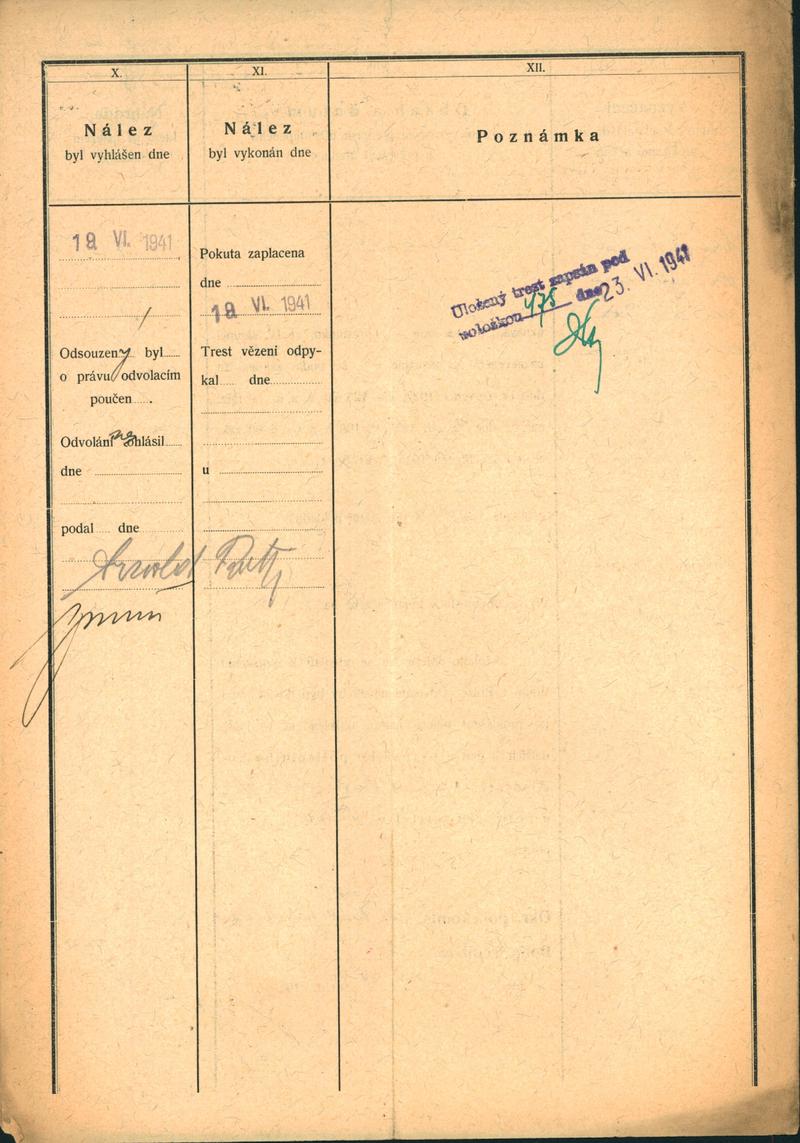 X.
Nález
byl vyhlášen dne
19 VI. 1941
Odsouzený byl
o právu odvolacím
poučen
Odvolání ohlásil
dne
podal dne
XI.
Nález
byl vykonán dne
Pokuta zaplacena
dne
19 VI. 1941
Trest vězení odpy-
kal dne
u
XII.
Poznámka
Uložený trest zapsán pod
položkou 475 dne 23. VI. 1941